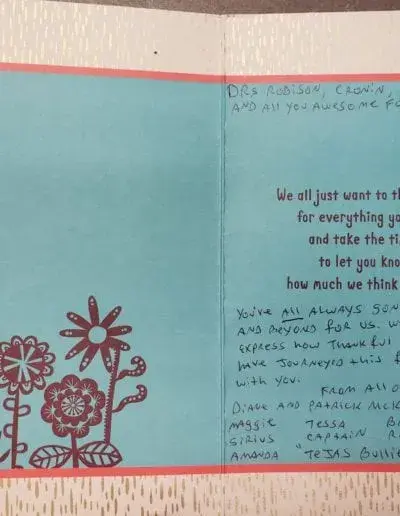 DRS ROBISON, CRONIN,
AND ALL YOU AWESOME
We all just want to
for everything
and take the
to let you
how much we think
YOU'VE ALL ALWAYS
AND BEYOND FOR US.
EXPRESS HOW THANKFUL
HAVE JOURNEYED THIS
WITH YOU.
FROM ALL
DIANE AND PATRICK
MAGGIE TESSA
SIRIUS CAPTAIN
AMANDA "TEJAS